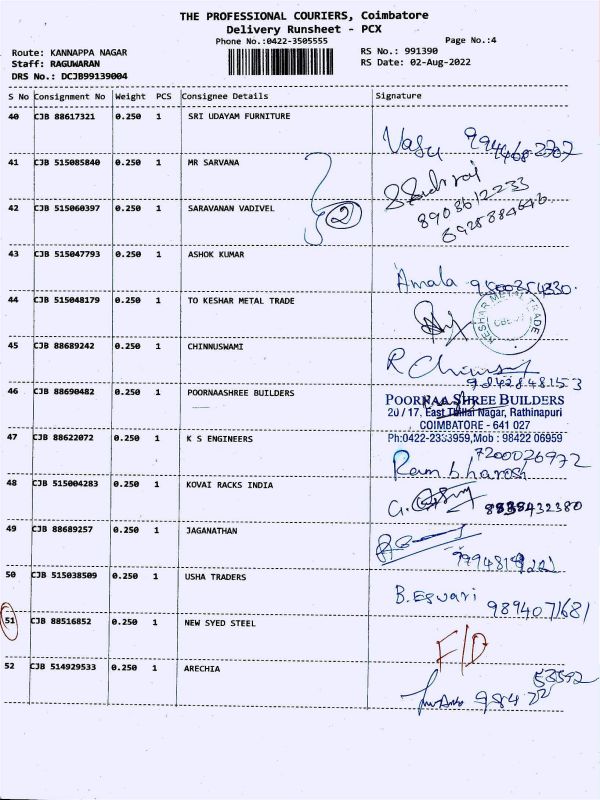 THE PROFESSIONAL COURIERS, Coimbatore
Delivery Runsheet - PCX
Phone No.:0422-3505555 Page No.:4
Route: KANNAPPA NAGAR RS No.: 991390
Staff: RAGUWARAN RS Date: 02-Aug-2022
DRS No.: DCJB99139004
S No Consignment No Weight PCS Consignee Details Signature
40 CJB 88617321 0.250 1 SRI UDAYAM FURNITURE
Vasu
41 CJB 515085840 0.250 1 MR SARVANA
8908612233
42 CJB 515060397 0.250 1 SARAVANAN VADIVEL
2
43 CJB 515047793 0.250 1 ASHOK KUMAR
Amala
44 CJB 515048179 0.250 1 TO KESHAR METAL TRADE
KESHAR METAL TRADE
45 CJB 88689242 0.250 1 CHINNUSWAMI
9842848153
46 CJB 88690482 0.250 1 POORNAASHREE BUILDERS
POORNAA SHREE BUILDERS
20 / 17, East Thillai Nagar, Rathinapuri
COIMBATORE - 641 027
Ph:0422-2333959,Mob : 98422 06959
47 CJB 88622072 0.250 1 K S ENGINEERS
7200026972
Ram bharosh
48 CJB 515004283 0.250 1 KOVAI RACKS INDIA
49 CJB 88689257 0.250 1 JAGANATHAN
50 CJB 515038509 0.250 1 USHA TRADERS
B. Eswari 9894071681
51 CJB 88516852 0.250 1 NEW SYED STEEL
F/D
52 CJB 514929533 0.250 1 ARECHIA
53592
98422